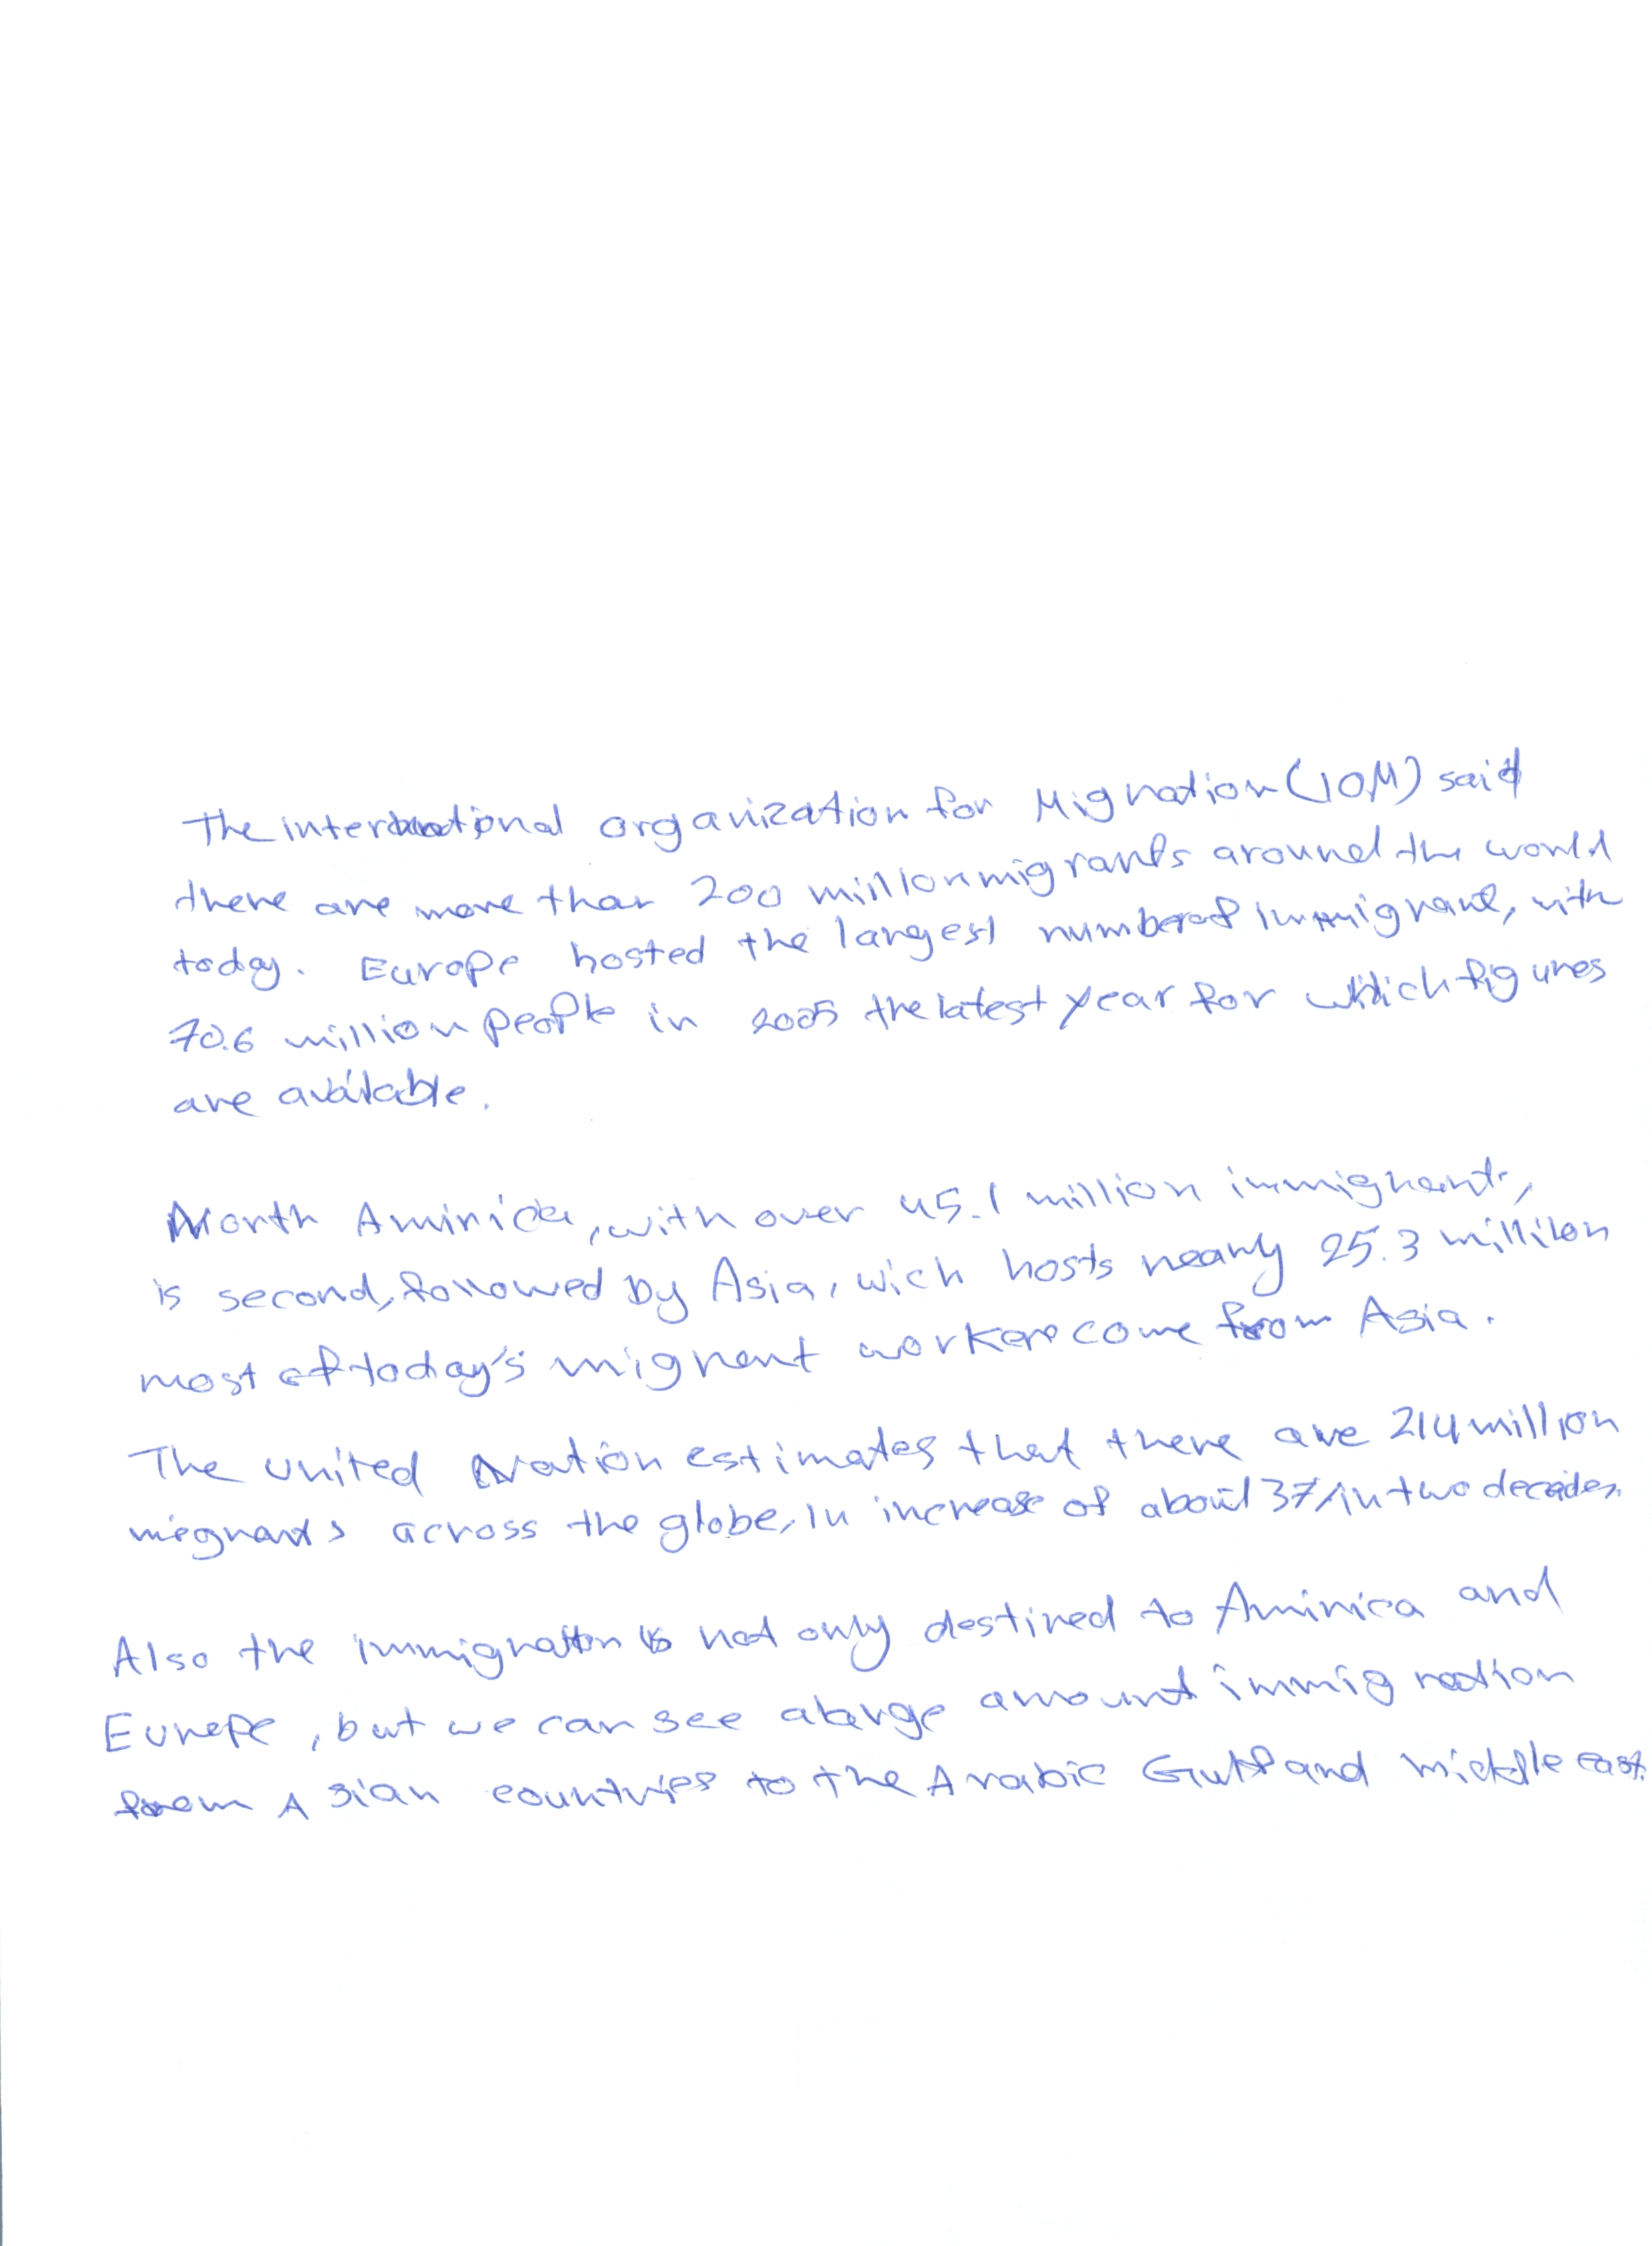 The international organization for Migration (IOM) said
there are more than 200 million migrants around the world
today. Europe hosted the largest number of immigrant, with
70.6 million people in 2005 the latest year for which figures
are available.
North Aminica, with over 45.1 million immigrants,
is second, followed by Asia, wich hosts nearly 25.3 millilon
most of today's migrent workers come from Asia.
The united Nation estimates that there are 214 million
megrants across the globe, In increase of about 37% in two decades.
Also the immigration is not only destined to Aminica and
Europe, but we can see a large amount immigration
from Asian countries to the Arabic Gulf and middle east.